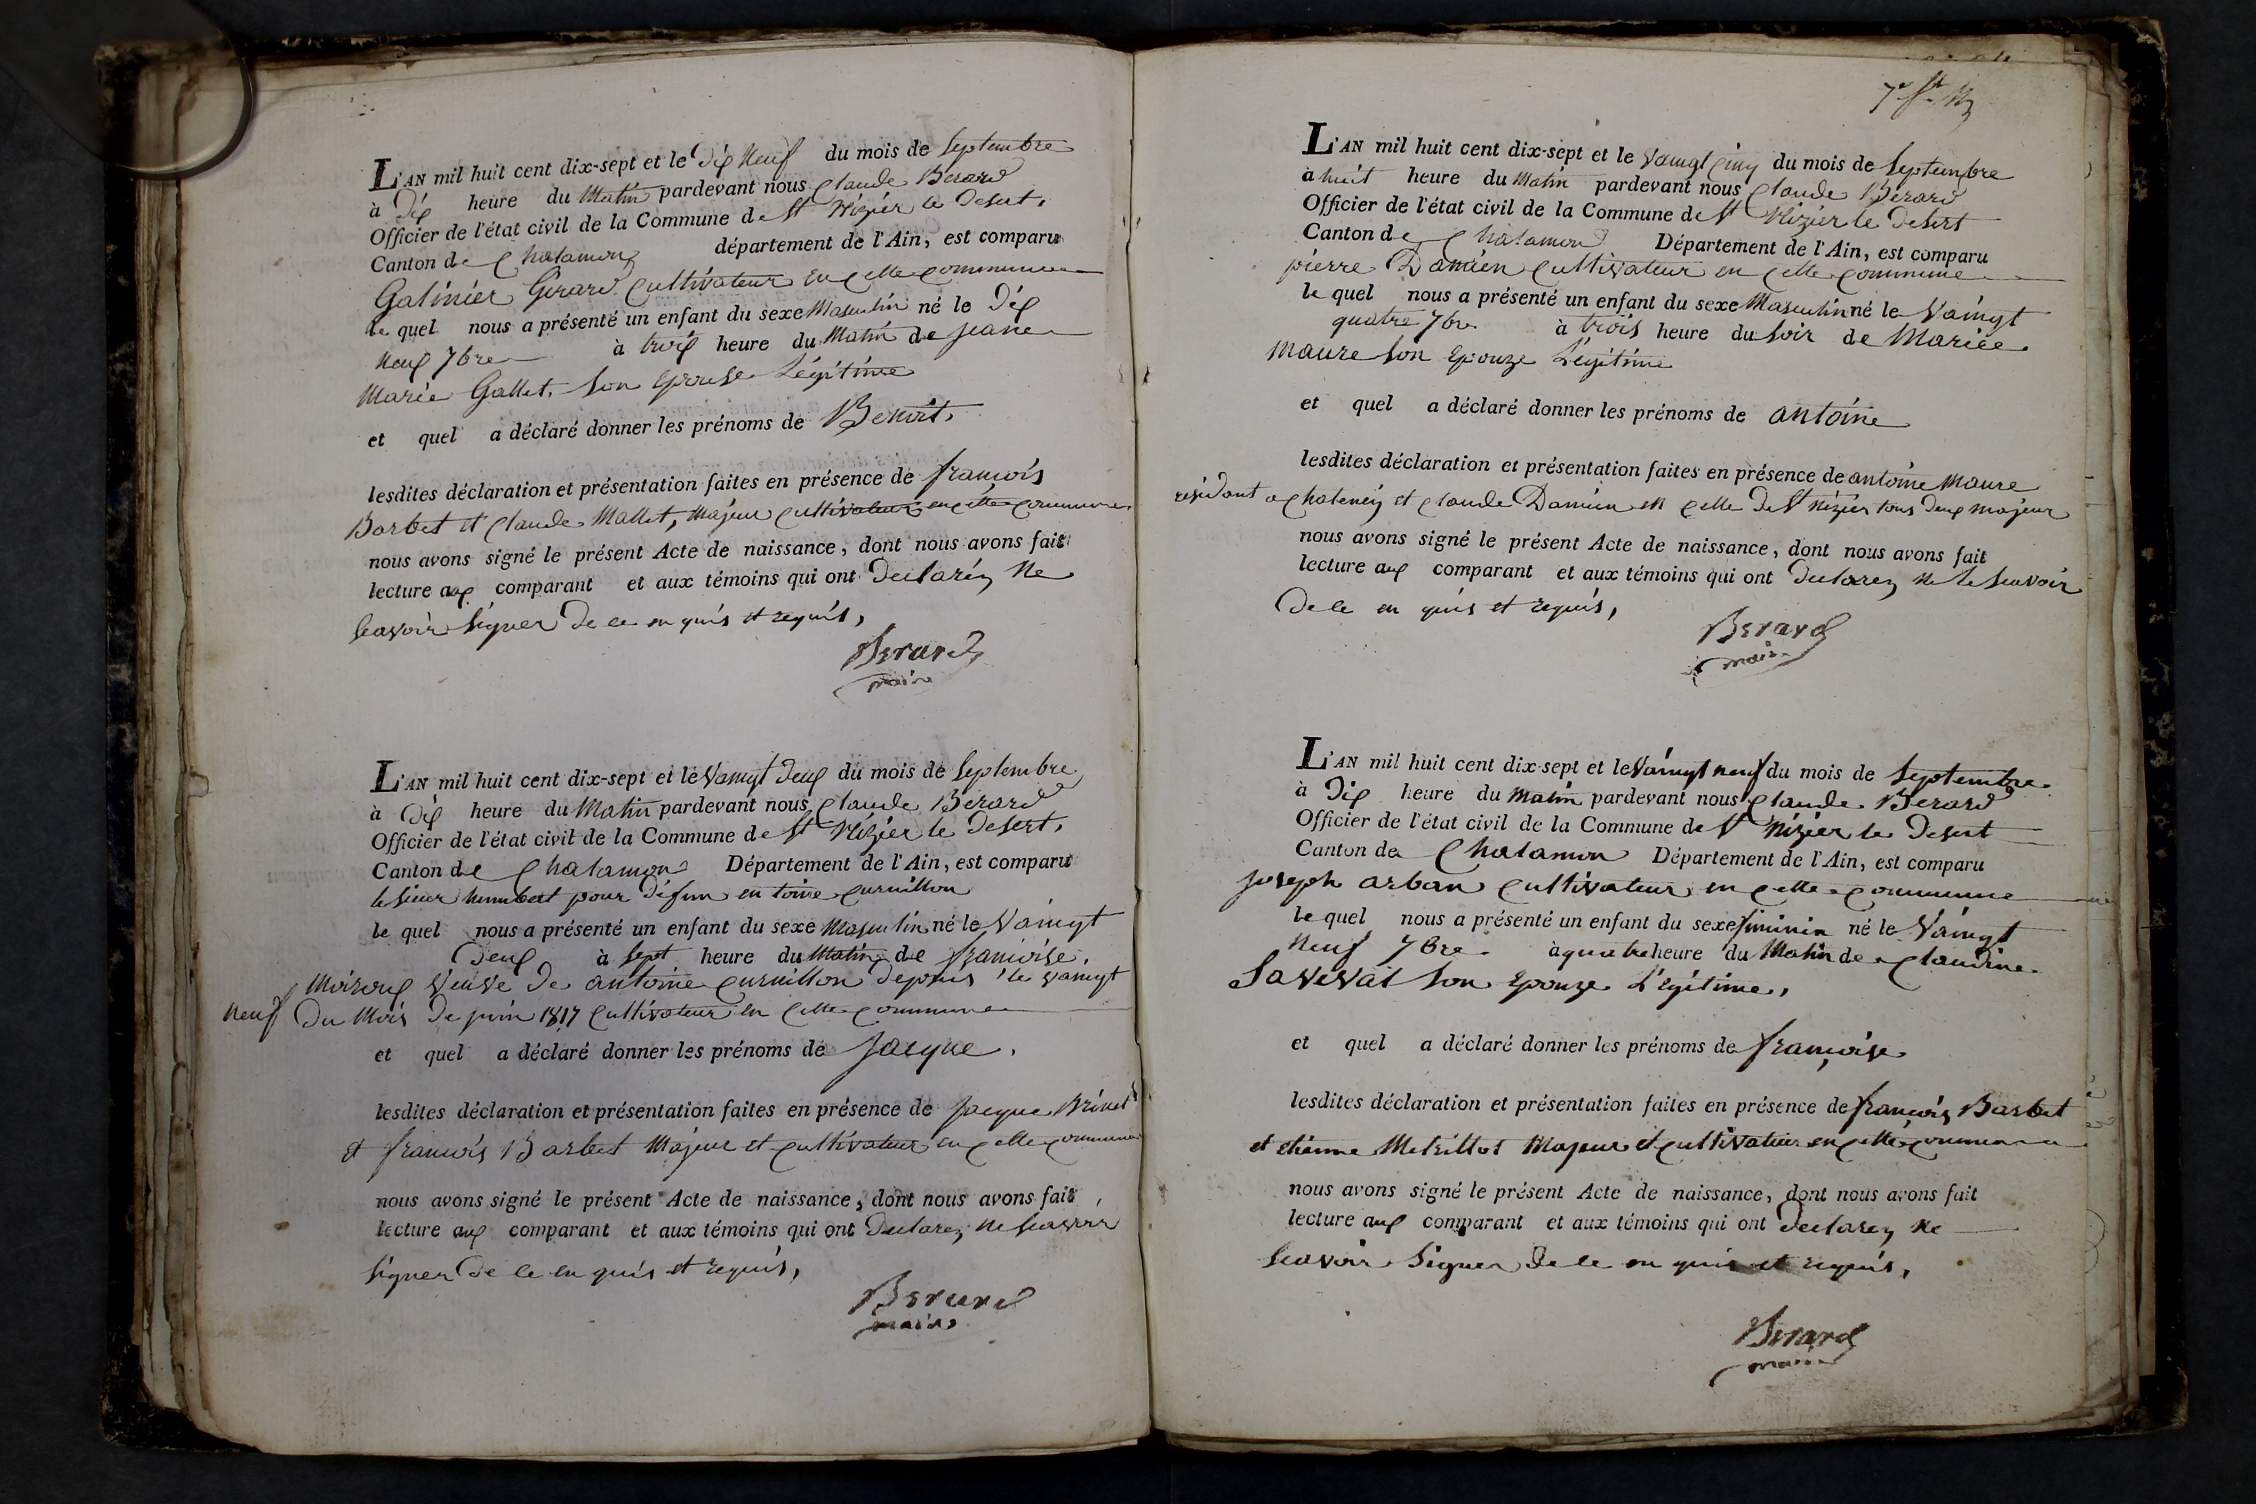 L'AN mil huit cent dix-sept et le dix neuf du mois de Septembre
à dix heure du Matin pardevant nous Claude Berard
Officier de l'état civil de la Commune de St Nizier le Desert,
Canton de Chalamon département de l'Ain, est comparu
Galinier Girard Cultivateur en Cette Commune
le quel nous a présenté un enfant du sexe Masculin né le dix
neuf 7bre à trois heure du Matin de jeane
Marie Gallet, son Epouse Légitime
et quel a déclaré donner les prénoms de Benoit,
lesdites déclaration et présentation faites en présence de francois
Barbet et Claude Mallet, Majeur Cultivateur en cette Commune
nous avons signé le présent Acte de naissance, dont nous avons fait
lecture aux comparant et aux témoins qui ont declaréz Ne
scavoir Signer de ce en quis et requis,
Berard
maire
L'AN mil huit cent dix-sept et le vaingt deux du mois de Septembre
à dix heure du Matin pardevant nous Claude Berard
Officier de l'état civil de la Commune de St Nizier le Desert,
Canton de Chalamon Département de l'Ain, est comparu
le sieur humbert pour défun en toine Curnillon
le quel nous a présenté un enfant du sexe Masculin né le Vaingt
deux à sept heure du Matin de francoise,
Moiroux Veuve de antoine Curnillon depuis le vaingt
neuf du Mois de juin 1817 Cultivateur en Cette Commune
et quel a déclaré donner les prénoms de jacque,
lesdites déclaration et présentation faites en présence de jacque Brinet
et francois Barbet Majeur et Cultivateur en Cette Commune
nous avons signé le présent Acte de naissance, dont nous avons fait
lecture aux comparant et aux témoins qui ont declarez Ne scavoir
signer de ce en quis et requis,
Berard
maire
L'AN mil huit cent dix-sept et le vaingt cinq du mois de Septembre
à huit heure du Matin pardevant nous Claude Berard
Officier de l'état civil de la Commune de St Nizier le desert
Canton de Chalamon Département de l'Ain, est comparu
pierre Damien Cultivateur en Cette Commune
le quel nous a présenté un enfant du sexe Masculin né le Vaingt
quatre 7bre à trois heure du soir de Mariée
Maure son Epouze Légitime
et quel a déclaré donner les prénoms de antoine
lesdites déclaration et présentation faites en présence de antoine Maure
residant a Chateney et Claude Damien en Celle de St nizier tous deux majeur
nous avons signé le présent Acte de naissance, dont nous avons fait
lecture aux comparant et aux témoins qui ont declarez ne le scavoir
de ce en quis et requis,
Berard
maire
L'AN mil huit cent dix-sept et le vaingt neuf du mois de Septembre
à dix heure du Matin pardevant nous Claude Berard
Officier de l'état civil de la Commune de St Nizier le Desert
Canton de Chalamon Département de l'Ain, est comparu
joseph arban Cultivateur en Cette Commune
le quel nous a présenté un enfant du sexe féminin né le Vaingt
Neuf 7bre à quatre heure du Matin de Claudine
Savevai son Epouze Légitime,
et quel a déclaré donner les prénoms de françoise
lesdites déclaration et présentation faites en présence de francois Barbet
et etienne Metrillot Majeur et Cultivateur en Cette Commune
nous avons signé le présent Acte de naissance, dont nous avons fait
lecture aux comparant et aux témoins qui ont declarez Ne
scavoir Signer de ce en quis et requis,
Berard
maire